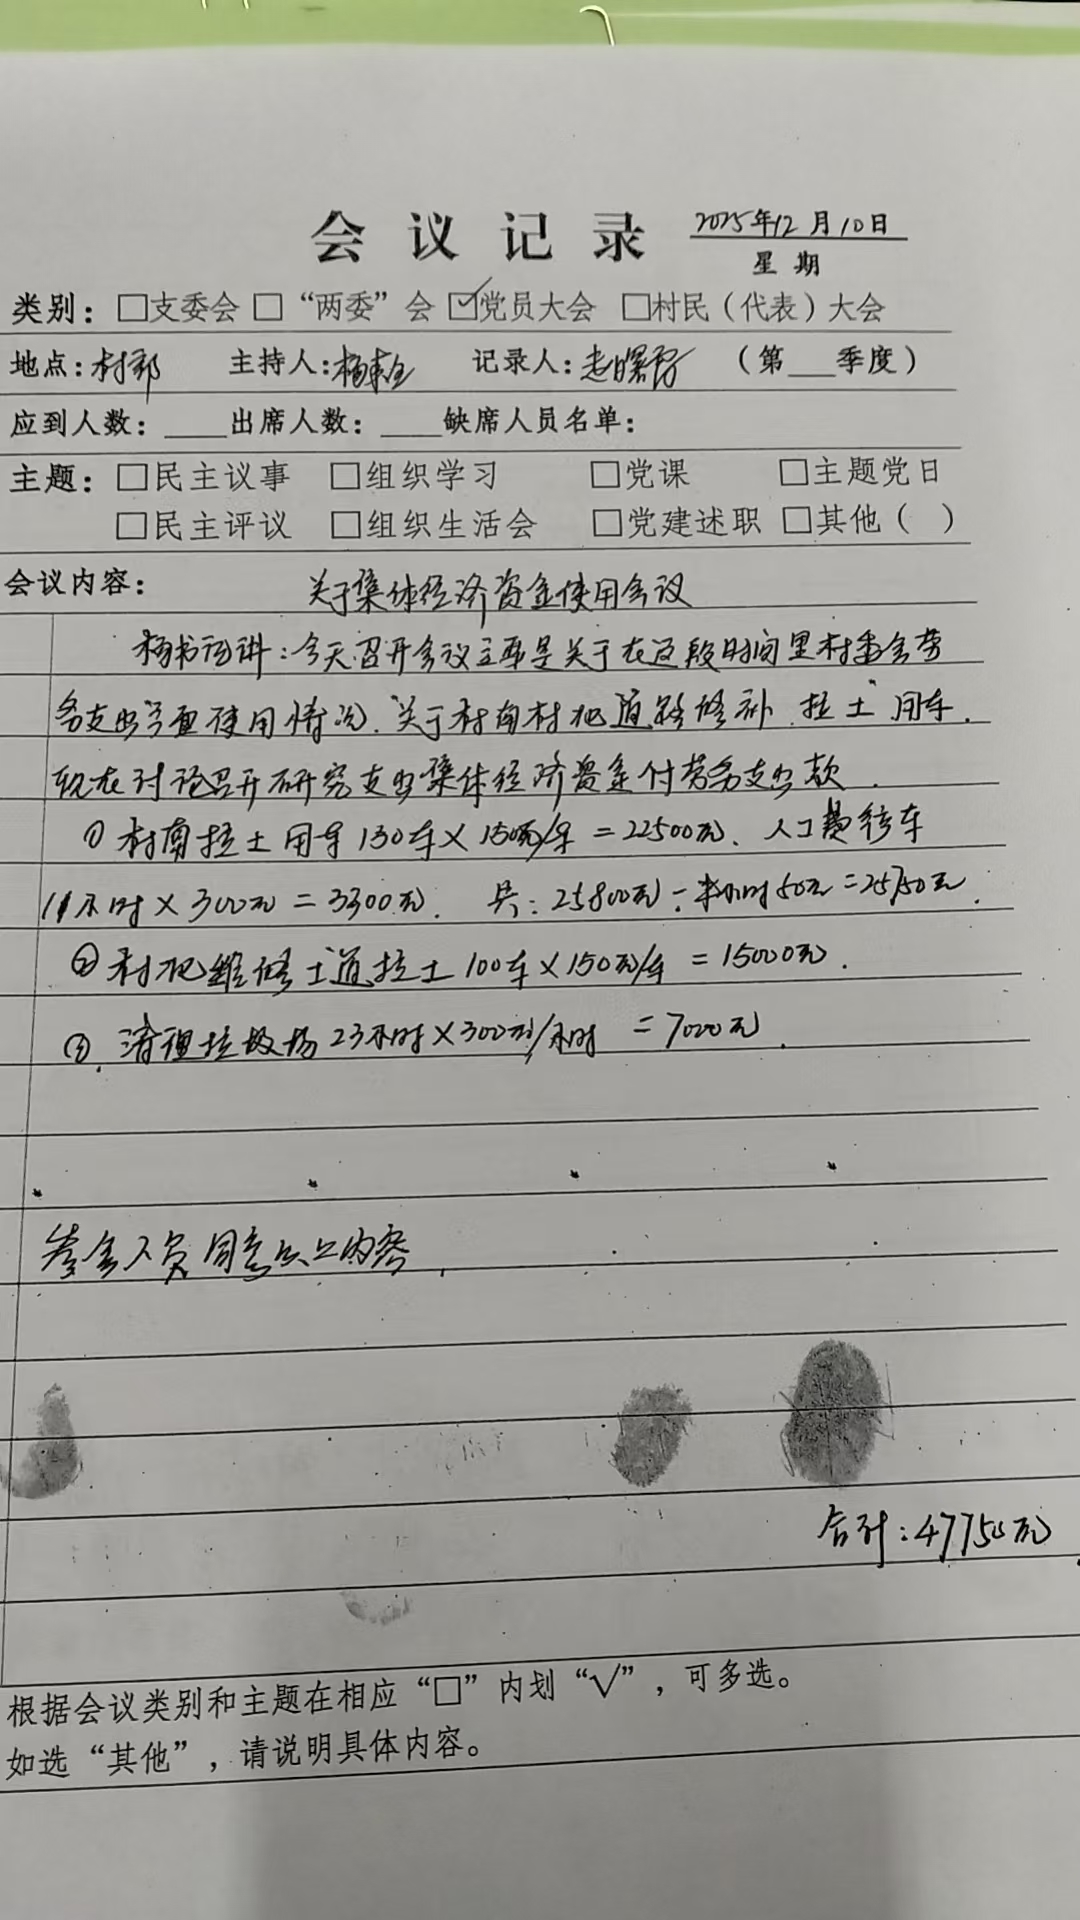 会议记录 2025年12月10日
星期
类别：□支委会 □“两委”会 ☑党员大会 □村民（代表）大会
地点：村部 主持人：杨 记录人： （第___季度）
应到人数：____出席人数：____缺席人员名单：
主题：□民主议事 □组织学习 □党课 □主题党日
□民主评议 □组织生活会 □党建述职 □其他（ ）
会议内容： 关于集体经济资金使用会议
杨书记讲：今天召开会议主要是关于在这段时间里村委会劳
务支出 使用情况.关于村南村北道路修补.拉土 用车.
现在讨论召开研究支出集体经济资金付劳务支出款.
① 村南拉土用车150车×150元/车=22500元、人工费 车
11小时×300元=3300元. 共:25800元-半小时50元=25750元.
② 村北维修土道拉土100车×150元/车=15000元.
③. 清理垃圾场23小时×300元/小时 =7000元.
参会人员同意以上内容.
合计:47750元
根据会议类别和主题在相应“□”内划“√”，可多选。
如选“其他”，请说明具体内容。